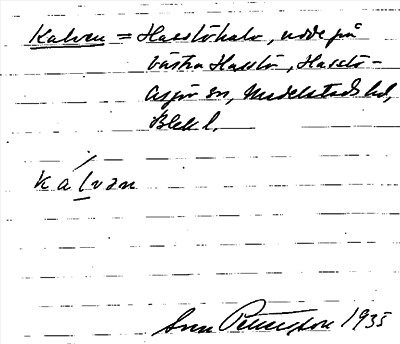 Kalven = Hasslöhalv, udde på
västra Hasslö, Hasslö-
Aspö sn, Medelstads hd,
Blek l.
kalvan
Sven Petersson 1935